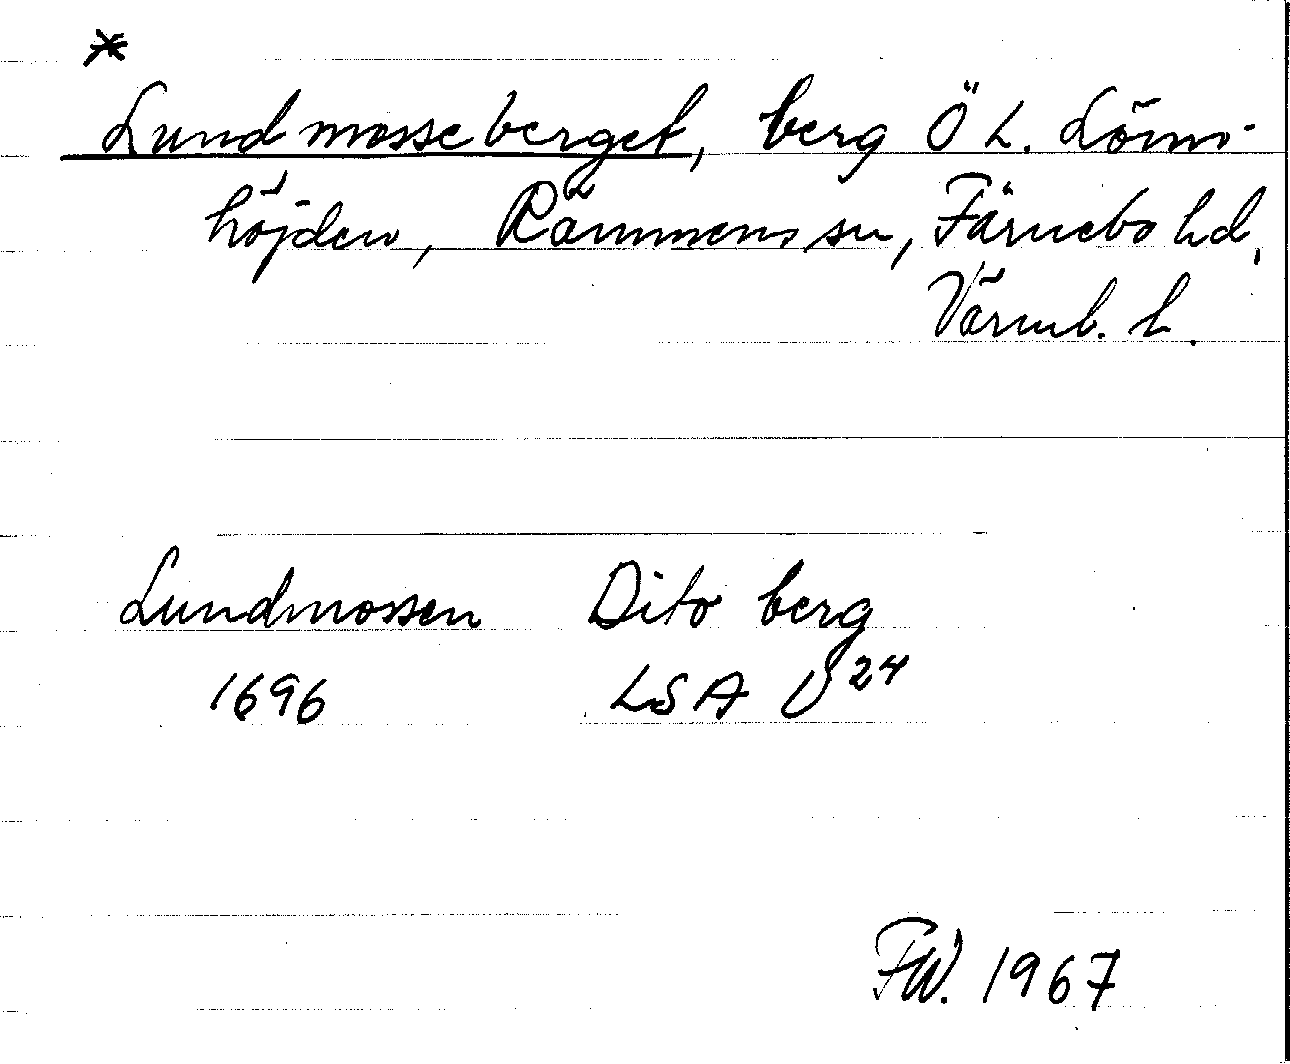 *
Lundmosseberget, berg Ö L. Löms-
höjden, Rämmens sn, Färnebo hd,
Värml. l.
Lundmossen Dito berg
1696 LSA U 24
FW. 1967